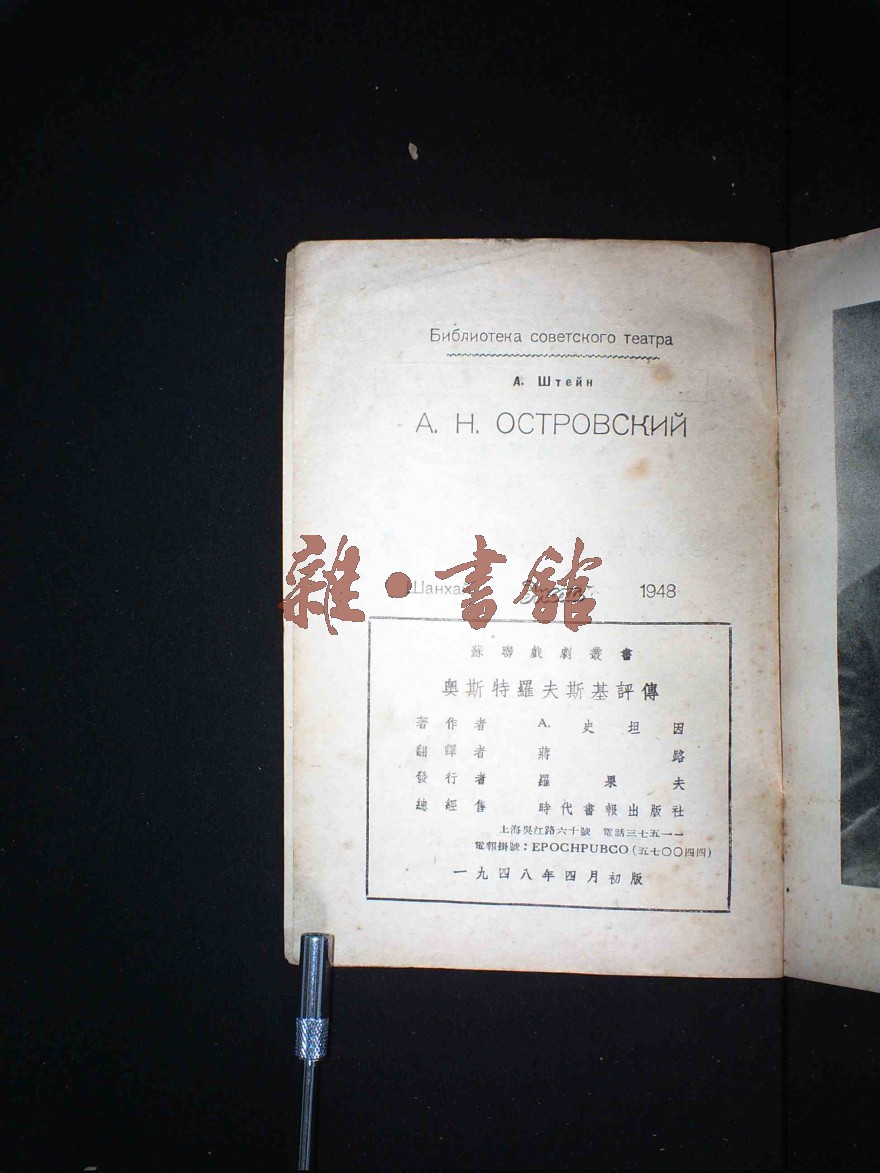 Библиотека советского театра
А. Штейн
А. Н. ОСТРОВСКИЙ
Шанха 1948
雜·書館
蘇聯戲劇叢書
奥斯特羅夫斯基評傳
著作者 A. 史坦因
翻譯者 蔣路
發行者 羅果夫
總經售 時代書報出版社
上海吳江路六十號 電話三七五一一
電報掛號：EPOCHPUBCO（五七〇〇四四）
一九四八年四月初版